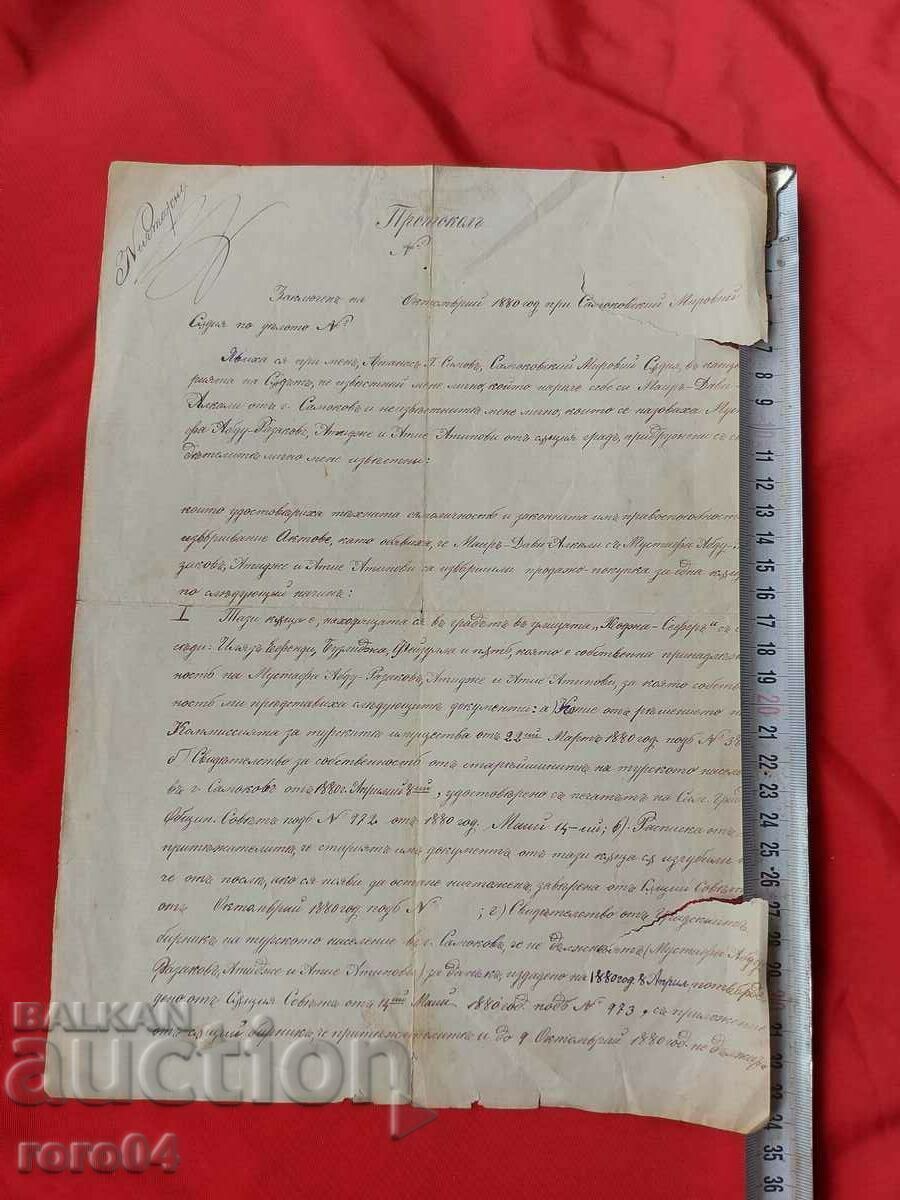 Протоколъ
№
Заключенъ на Октомврий 1880 год при Самоковский Мировий
Сѫдия по дѣлото №
Явиха ся при мене, Атанасъ П. Самов, Самоковский Мировий Сѫдия, въ канце
рията на Сѫдътъ, не известний мене лично, който нарече себе си Маиръ-Дави
Алкали отъ г. Самоковъ и неизвѣстнитѣ мене лично, които се назоваха Мус
фа Абду-Разаковъ, Атидже и Атие Атипови отъ сѫщия градъ, придружени съ
дѣтелитѣ лично мене известни:
които удостовѣриха тѣхната самоличность и законната имъ правоспособность
извършвание Актове, като обявиха, че Маиръ-Дави Алкали съ Мустафа Абду-
заковъ, Атидже и Атие Атипови са извършили продажо-покупка за една кѫща
по слѣдующий начинъ:
I Тази кѫща е, находящата ся въ градътъ въ улицата „Коджа-Сефер" съ с
седи: Илязъ Ефенди, и пѫтъ, която е собственна принадлеж
ность на Мустафа Абду-Разаковъ, Атидже и Атие Атипови, за която собств
ность ми представиха слѣдующитѣ документи: а) Копие отъ рѣшението н
Коммиссията за турскитѣ имущества отъ 22ий Мартъ 1880 год. подъ № 38
б) Свидѣтелство за собственность отъ старѣйшинитѣ на турското насел
въ г. Самоковъ отъ 1880 г. Априлий 8ий, удостоверено съ печатътъ на Сам. Град
Общин. Совѣтъ подъ № 972 отъ 1880 год. Маий 14-ий; в) Расписка отъ
притежателитѣ, че старият имъ документъ отъ тази кѫща сѫ изгубили
че отъ послѣ, ако ся появи да остане ничтоженъ, завѣрена отъ Сѫщий Совѣтъ
отъ Октомврий 1880 год. подъ № ; г) Свидѣтелство отъ Градскитѣ
бирникъ на турското население въ г. Самоковъ, че не дължаятъ (Мустафа Абду
Разаковъ, Атидже и Атие Атипови) за данъкъ, издадено на 1880 год 8 Април,
дено отъ Сѫщия Совѣтъ отъ 14ий Маий 1880 год. подъ № 973, съ приложение
отъ сѫщий бирникъ, че притежателитѣ и до 9 Октомврий 1880 год. не дължа
BALKAN
auction
roro04
7
8
9
10
11
12
13
14
15
16
17
18
19
20
21
22
23
24
25
26
27
28
29
30
31
32
33
34
35
36